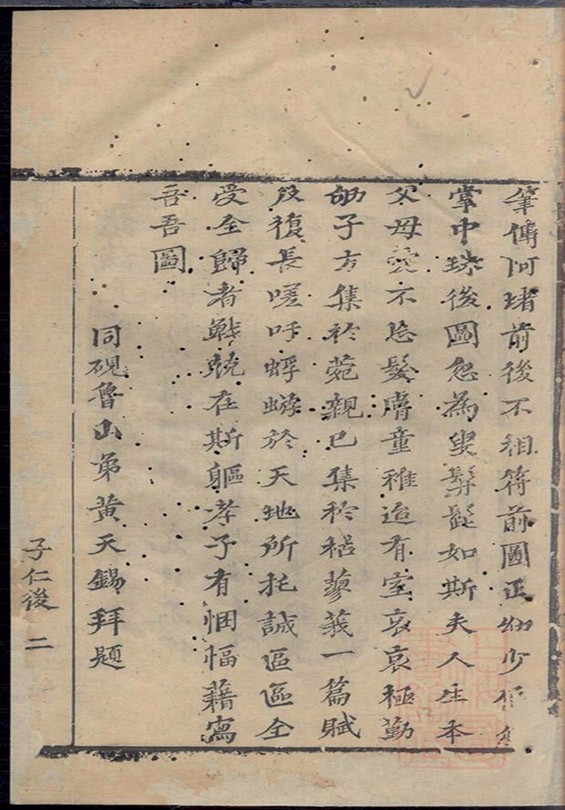 筆傳阿堵前後不相符前圖正幼少
掌中珠後圖忽為叟鬅髭如斯夫人生本
父母愛不忘髮膚童稚迨有室哀哀極勤
劬子方集於菀親已集於枯蓼莪一篇賦
反復長嗟吁蜉蝣於天地所托誠區區全
受全歸者戰兢在斯軀孝子有悃愊藉寫
吾吾圖
同硯魯山弟黃天錫拜題
子仁後 二